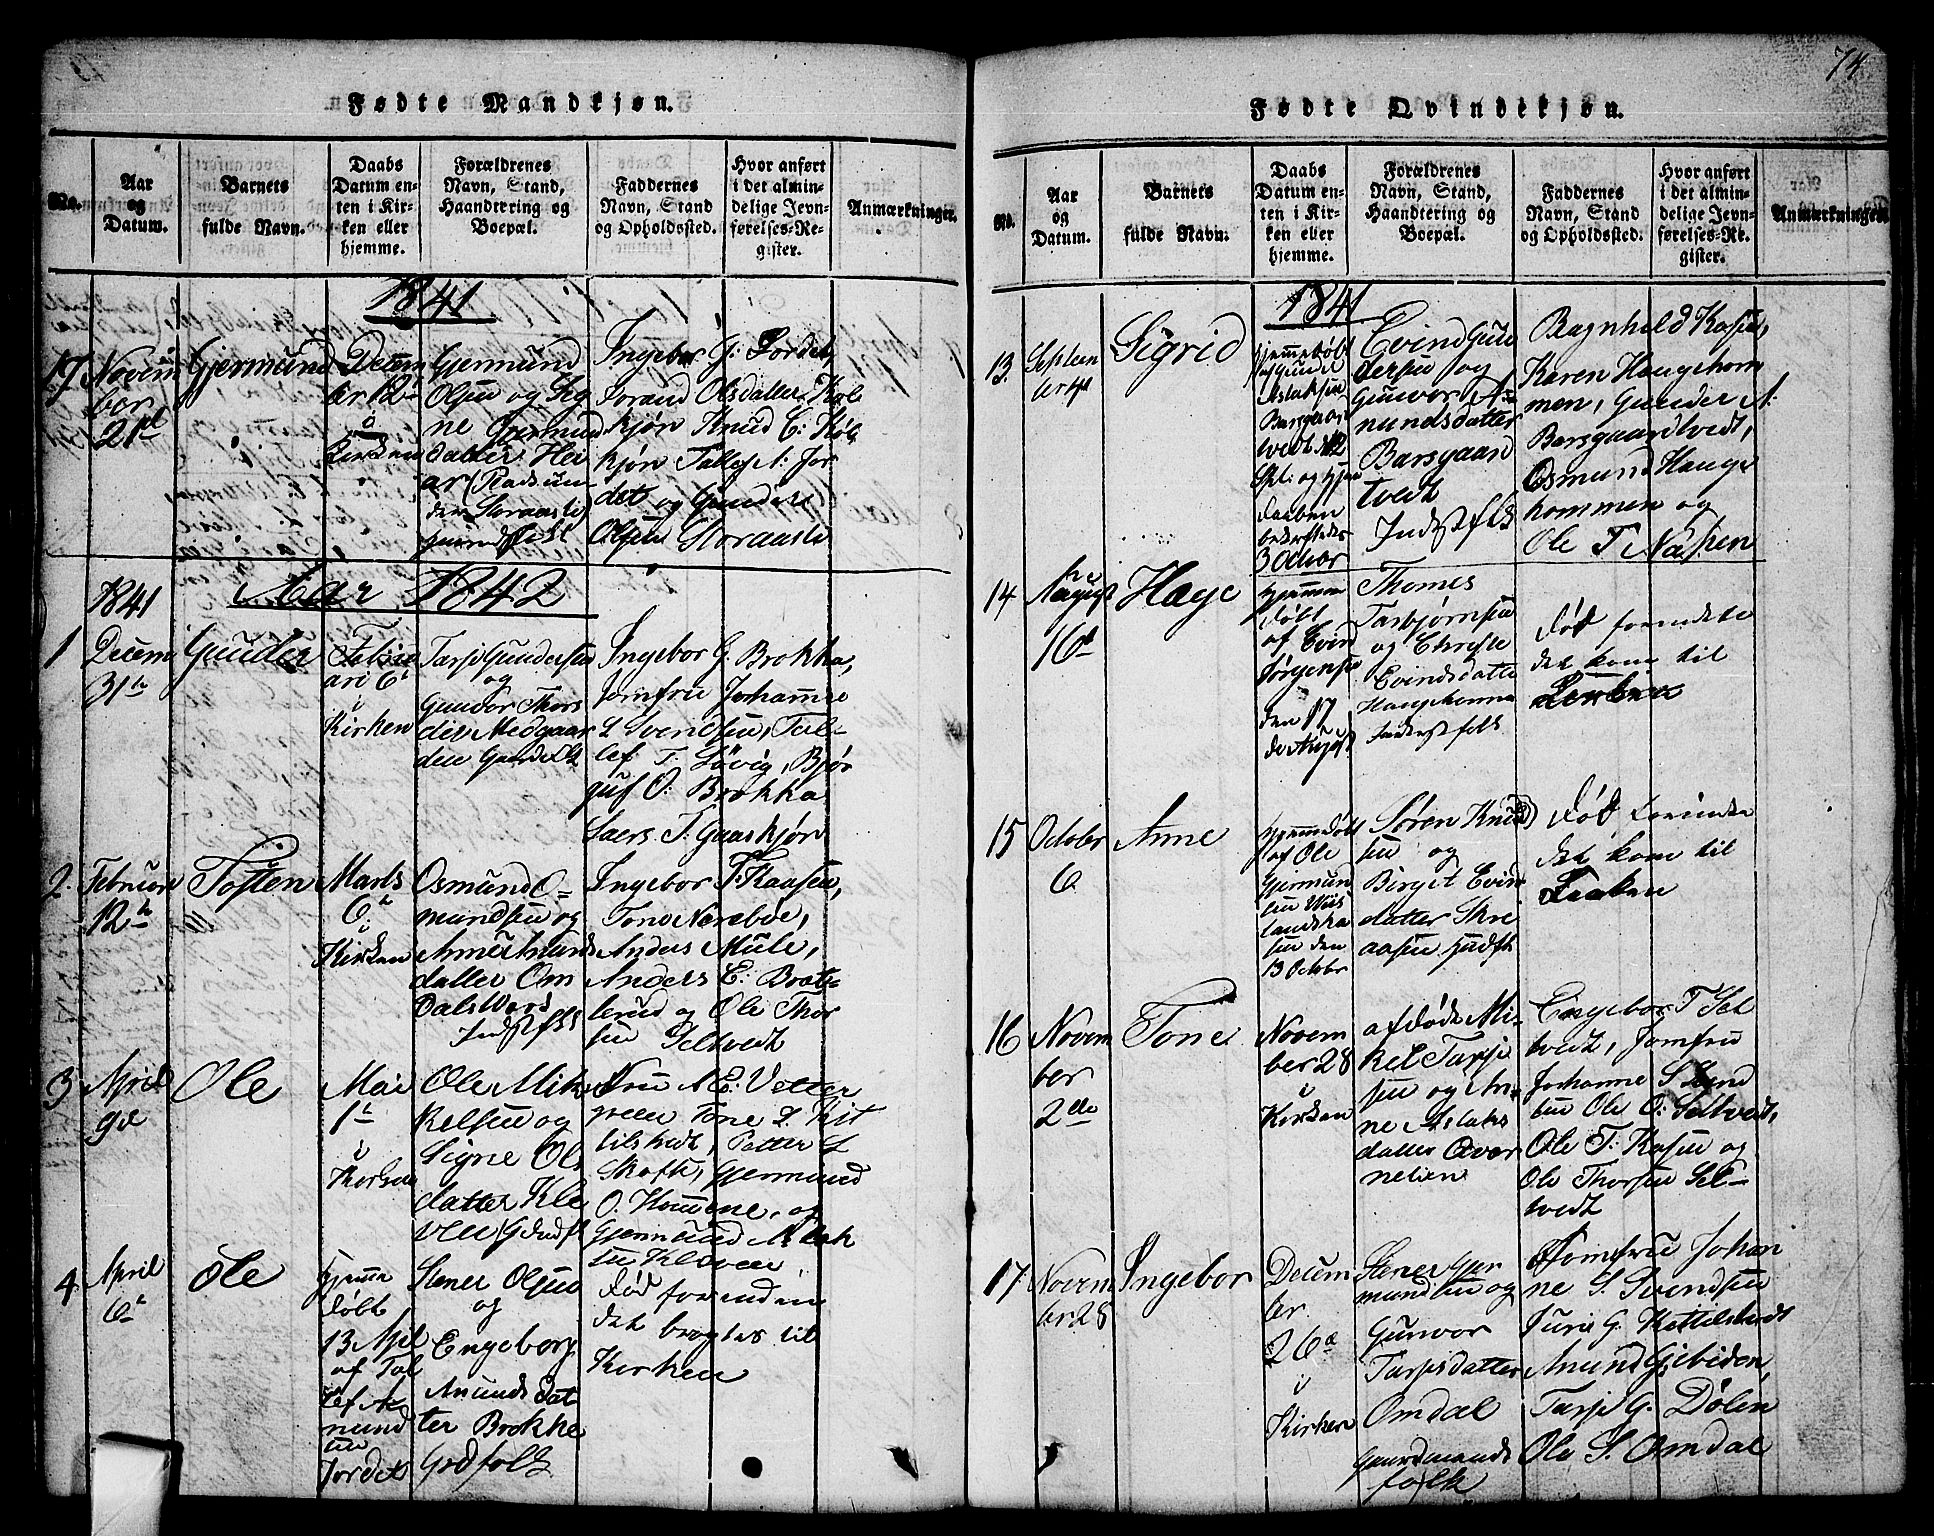 74
Fødte Mandkjøn.
No.
Aar
og
Datum.
Barnets
fulde Navn.
Daabs
Datum en-
ten i Kir-
ken eller
hjemme.
Forældrenes
Navn, Stand,
Haandtering og
Boepæl.
Faddernes
Navn, Stand
og Opholdssted.
Hvor anført
i det almin-
delige Jevn-
førelses-Re-
gister.
Anmærkninger.
1841
17
Novem
ber
21
Gjermund
Decem
ber 12
i
Kirken
Gjermund
Olsen og Sig
ne Gjermunds
datter
Ingebor G: Jordet,
Olsdatter
Knud
Jor
det og Gunder
Olsen Storaasli
Aar 1842
1841
1
Decem
31
Gunder
Febru
ari 6
i
Kirken
Tarje Gundersen
og
Gunvor Thors
Ingebor G. Brokka,
Jomfru Johanne
L Svendsen, Tal-
lef T. Løvig, Bjør
guf O: Brokka
T. Gaaskjøn
2.
Februar
12
Tosten
Marts
6
i
Kirken
Osmund O-
mundsen og
Anne Amunds
datter Om
dals
Ingebor T. Kaasen,
Tone Nereboe,
Anders Mule,
Anders E: Brats-
lerud og Ole Thor
sen Seltvedt
3
April
9
Ole
Mai
1
i
Kirken
Ole Mik
kelsen og
Signe Ols
datter Kle
ven
Fru M E: Vetter
green Tone L Kit
tilstvedt, Petter S
Skoft, Gjermund
O. Hommene, og
Gjermund
sen Kleven
4
April
6
Ole
hjemme
døbt
13 April
af Tal
lef A
mund
sen
Jordet
Stener Olsen
og
Engeborg
Anunds dat
ter Brokke
Grdfolk
Død forinden
det bragtes til
Kirken
Fødte Qvindekjøn.
No.
Aar
og
Datum.
Barnets
fulde Navn.
Daabs
Datum en-
ten i Kir-
ken eller
hjemme.
Forældrenes
Navn, Stand,
Haandtering og
Boepæl.
Faddernes
Navn, Stand
og Opholdssted.
Hvor anført
i det almin-
delige Jevn-
førelses-Re-
gister.
Anmærkninger.
1841
13.
Septem
ber 4
Sigrid
hjemmedøbt
af Gunder
Aslaksen
Barsgaard
tvedt
og hjem
daaben
bekræftedes
3 Octbr
Evind Gun
dersen og
Gunvor A-
nundsdatter
Barsgaard
tvedt
Indstflk
Ragnhild Kasen,
Karen Haugehom
men, Gunder A:
Barsgaardtvedt,
Osmund Hauge
hommen og
Ole T Næsen
14
August
16
Hæge
hjemme
døbt
af Evind
Jørgensen
den 17
de August
Thomes
Tarbjørnsen
og Christe
Evindsdatter
Haugehomme
Inderstfolk
Død forindete
det kom til
Kirken
15
Octobr
6
Anne
hjemmedøbt
af Ole
Gjermun
sen
den
13 Octobr
Søren Knud
sen og
Birgit Evin
datter Skre
aasen
Død forinde
det kom til
16
Novem
ber
2
Tone
Novem
ber 28
i
Kirken
afdøde Mi-
kel Tarje
sen og An-
ne Aslaks
datter Øver
nelien
Eingebor T Sel
tvedt, Jomfru
Johanne S Svend
sen Ole O: Seltvedt,
Ole T: Kasen og
Ole Thorsen Sel-
tvedt
17.
Novem
ber 28
Ingebor
Decem
ber
26
i
Kirken
Stener Gjer
mundsen og
Gunvor
Tarjesdatter
Omdal
Gaardmands
folk
Jomfru Johan
ne S. Svendsen
Juri G. Kittilstvedt
Anund Gjebiden,
Tarje G. Dølen
Ole S. Omdal